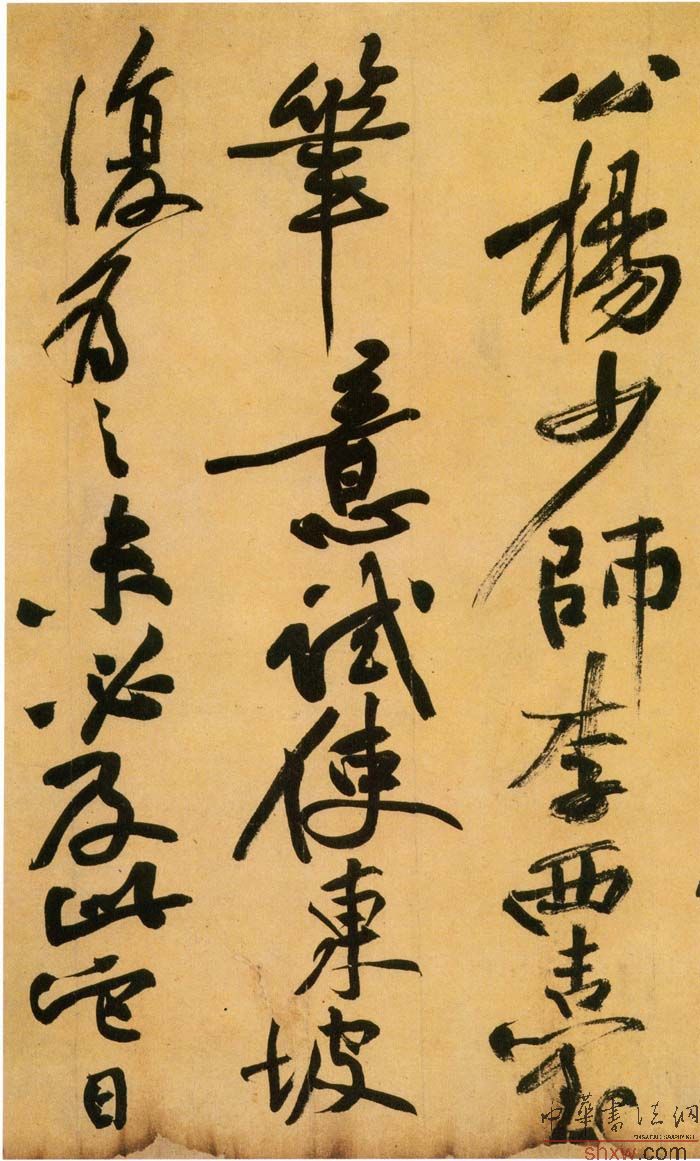 公楊少師李西臺
筆意試使東坡
復為之未必及此它日
中華書法網
shxw.com